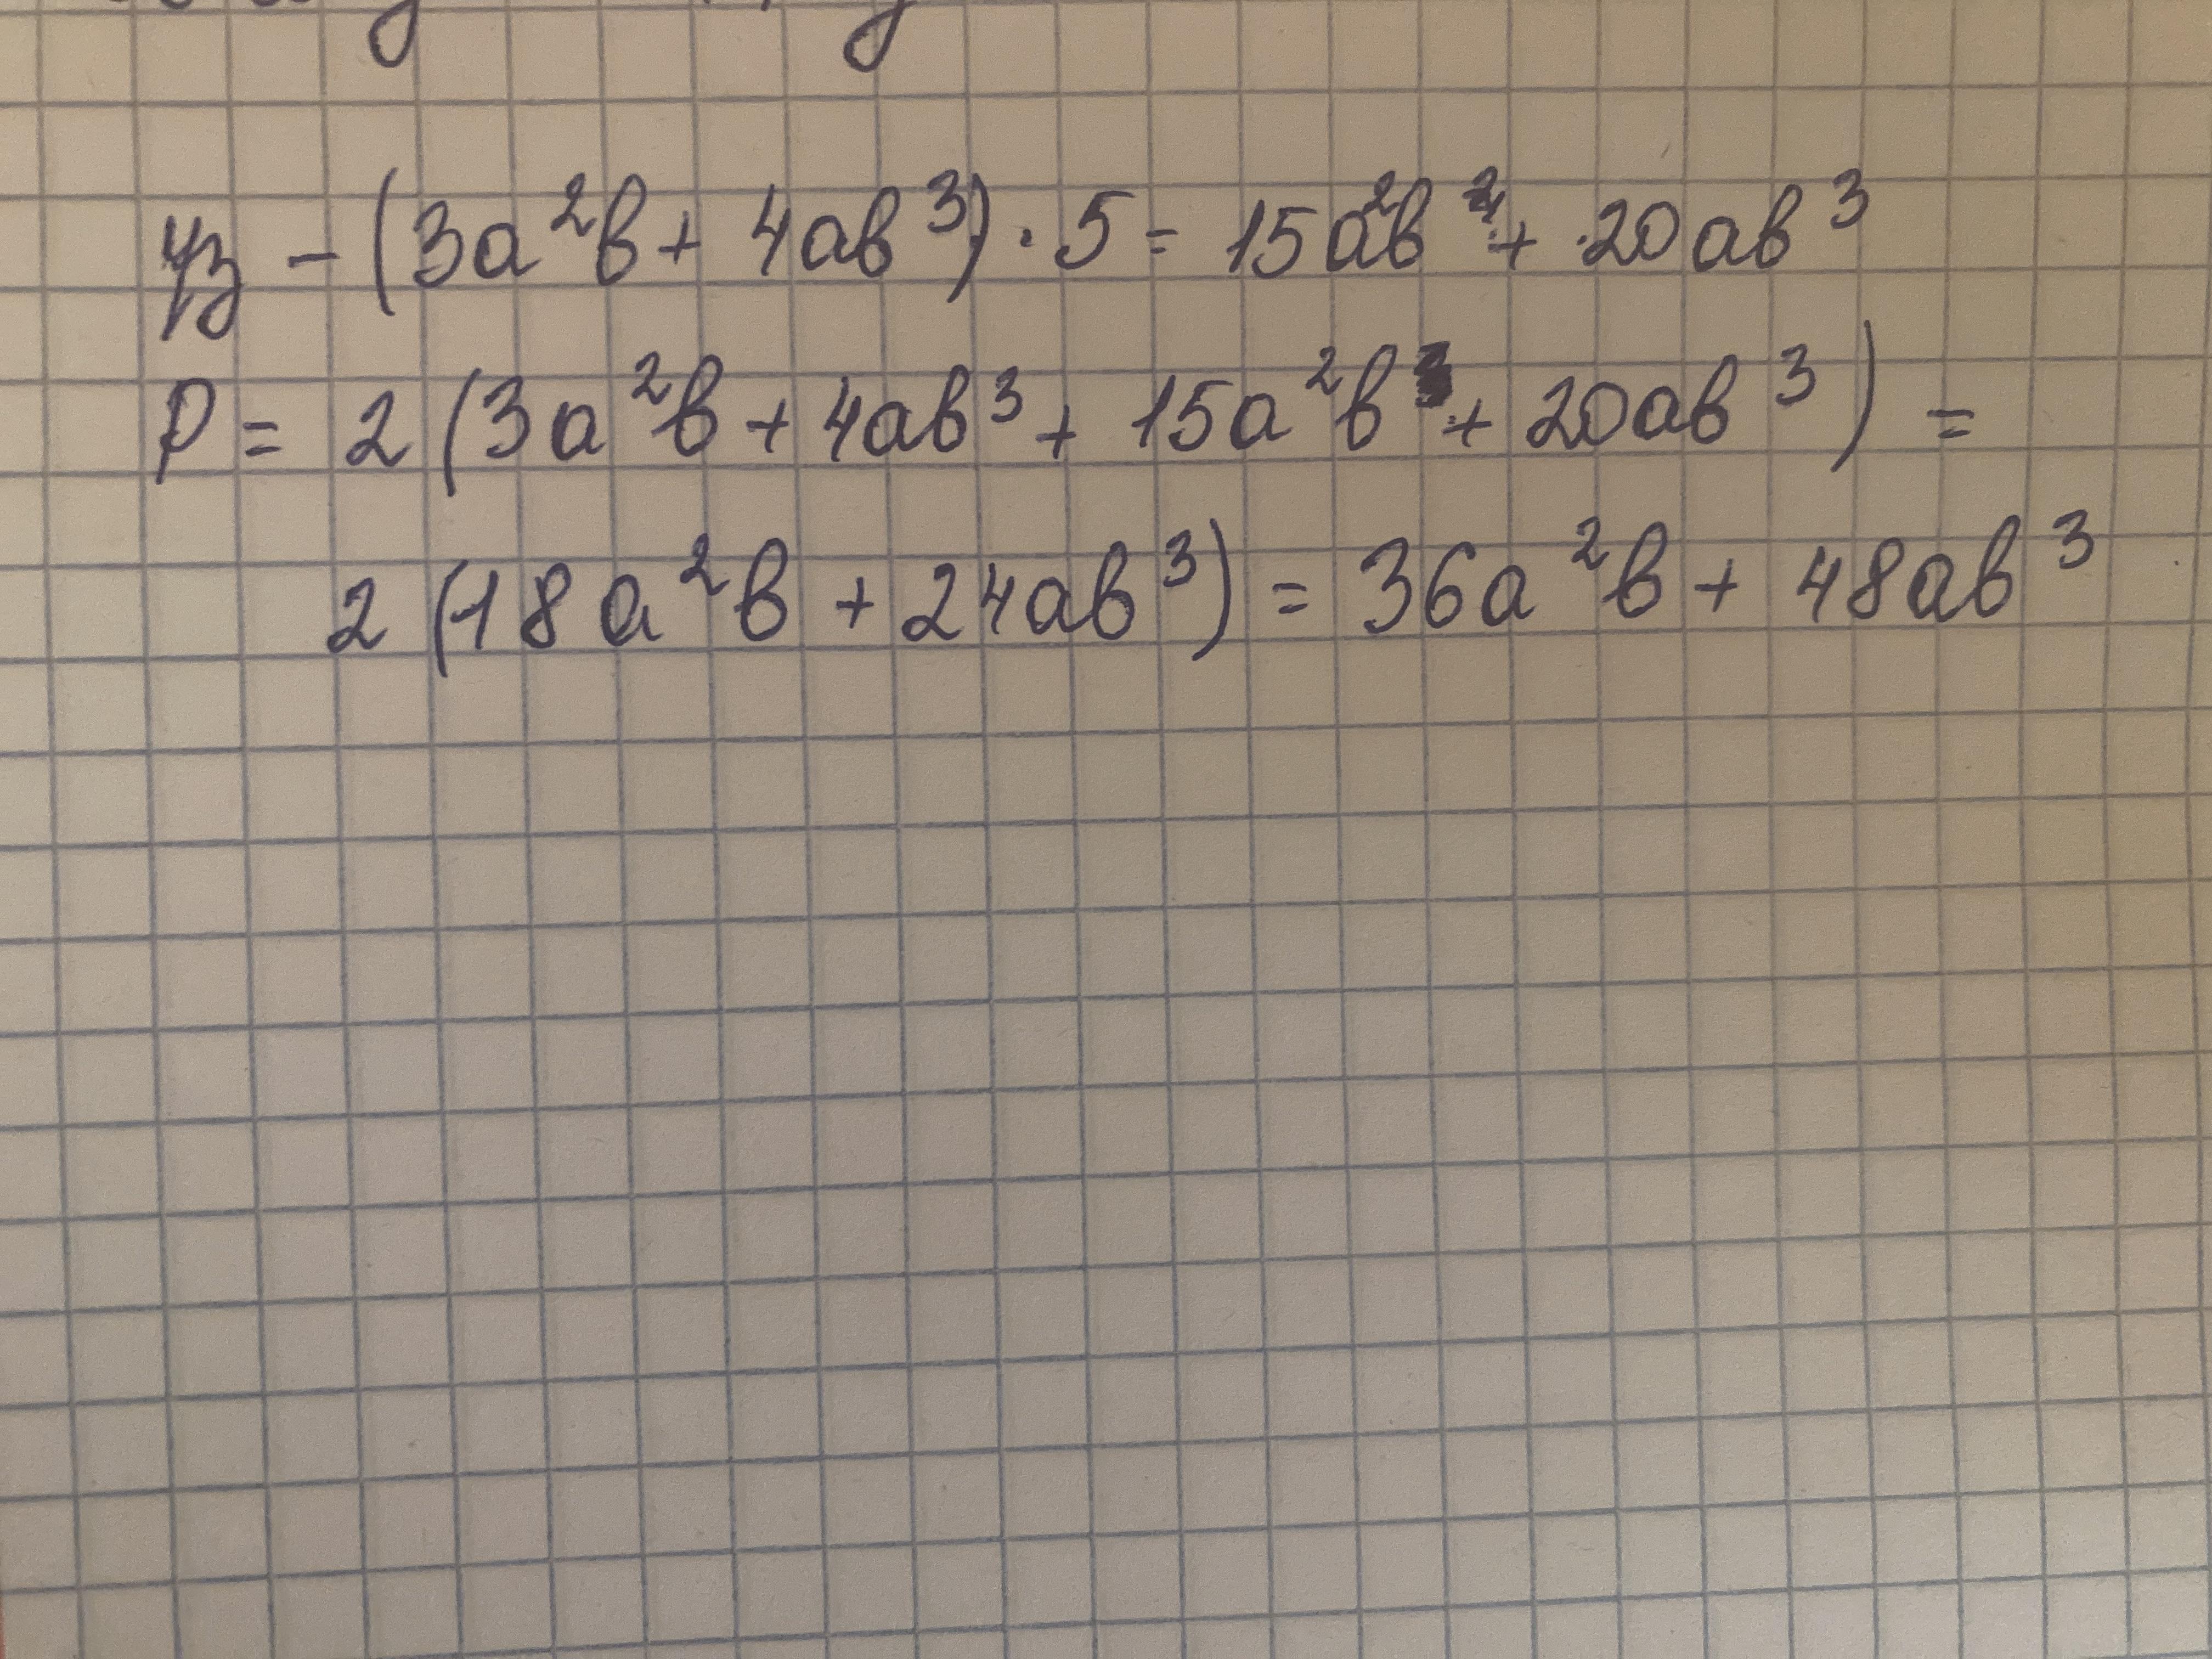 yz - (3a²b + 4ab³) · 5 = 15a²b + 20ab³
P = 2 (3a²b + 4ab³ + 15a²b + 20ab³) =
2 (18a²b + 24ab³) = 36a²b + 48ab³